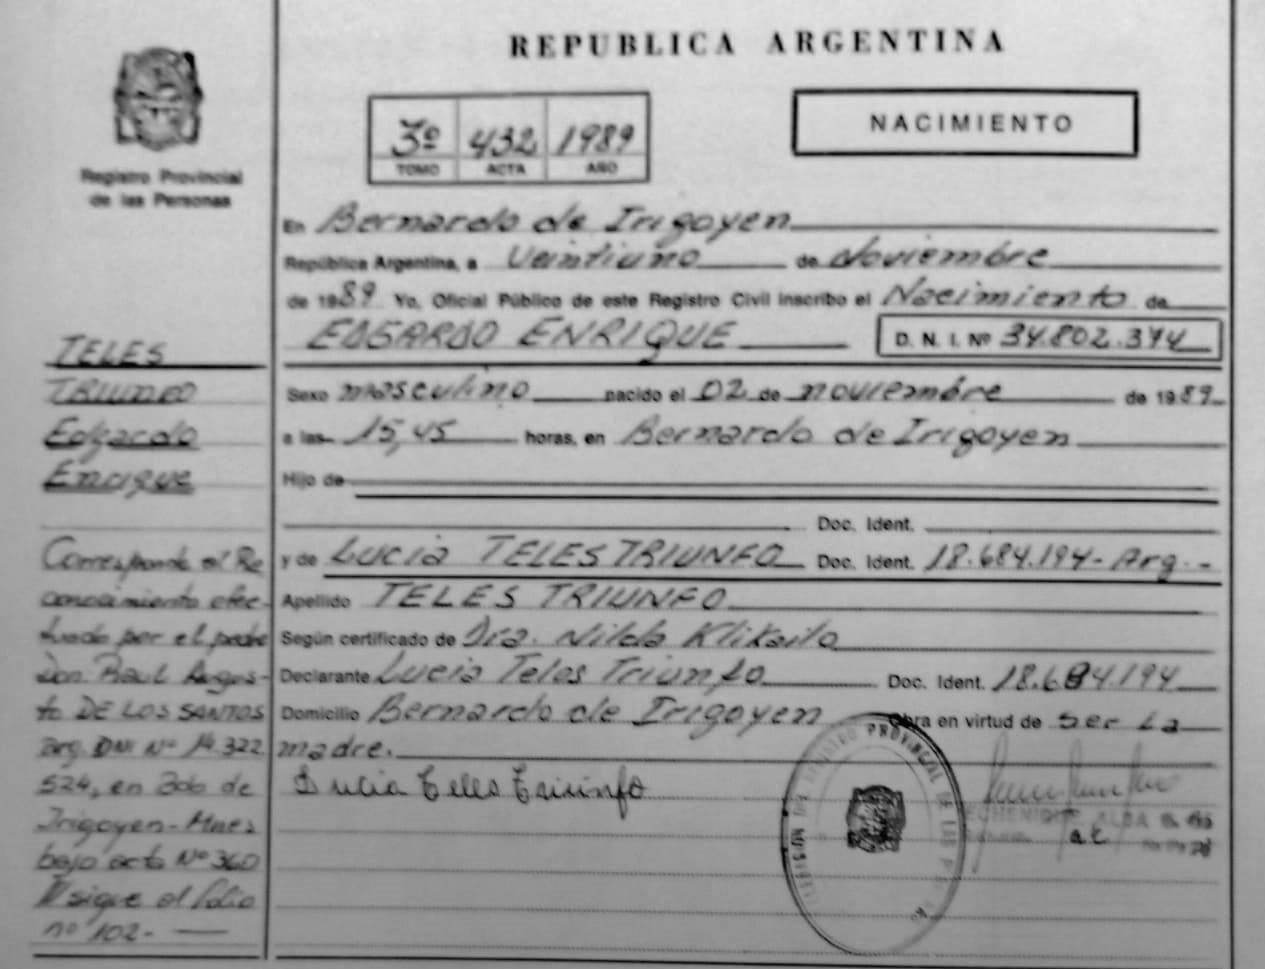 REPUBLICA ARGENTINA
Registro Provincial
de las Personas
3º 432 1989
TOMO ACTA AÑO
NACIMIENTO
En Bernardo de Irigoyen
República Argentina, a Veintiuno de Noviembre
de 1989 Yo, Oficial Público de este Registro Civil inscribo el Nacimiento de
EDGARDO ENRIQUE D. N. I. Nº 34.802.374
Sexo masculino nacido el 02 de noviembre de 1989
a las 15,45 horas, en Bernardo de Irigoyen
Hijo de
Doc. Ident.
y de Lucia TELES TRIUNFO Doc. Ident. 18.684.194- Arg.-
Apellido TELES TRIUNFO
Según certificado de Dra. Nilda
Declarante Lucia Teles Triunfo Doc. Ident. 18.684.194
Domicilio Bernardo de Irigoyen Obra en virtud de ser La
madre.
Lucia Teles Triunfo
TELES
TRIUNFO
Edgardo
Enrique
Corresponde al Re
conocimiento efec-
tuado por el padre
Don Raul Augus-
to DE LOS SANTOS
Arg. DNI Nº 14.322
524, en Bdo de
Irigoyen-Mnes
bajo acta Nº 360
sigue al folio
nº 102.-
REGISTRO PROVINCIAL DE LAS
ECHENIQUE ALBA